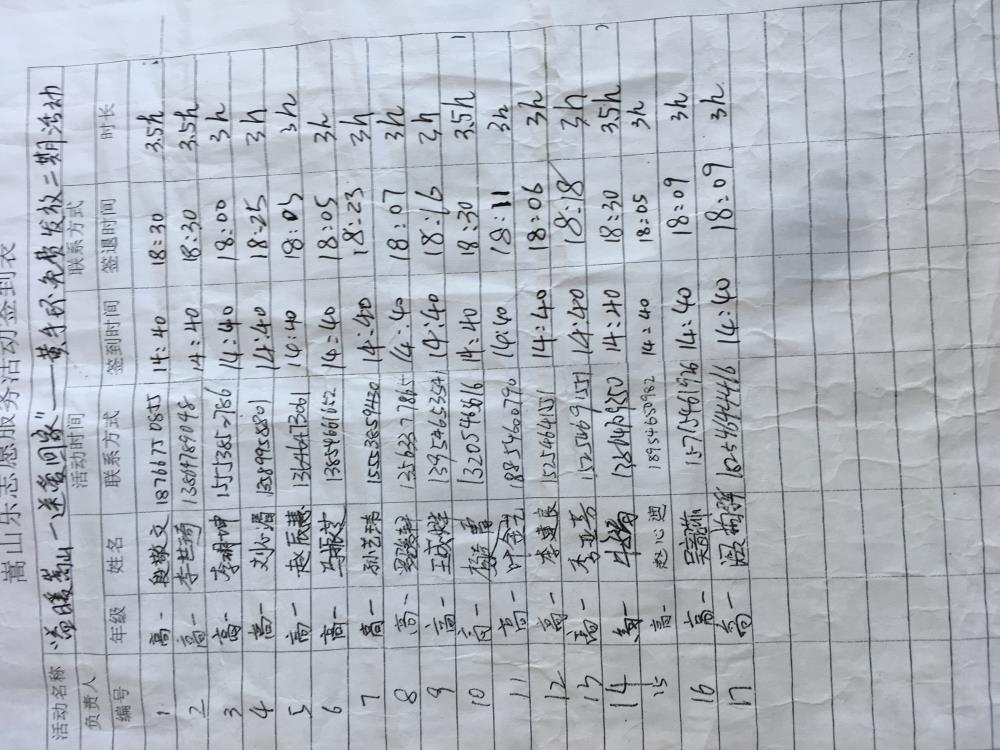 嵩山乐志愿服务活动签到表
活动名称 温暖嵩山"送爱回家"——黄手环免费发放二期活动
负责人 活动时间 联系方式
编号 年级 姓名 联系方式 签到时间 签退时间 时长
1 高一 段敬文 18766750855 14:40 18:30 3.5h
2 高一 李世琦 13864789048 14:40 18:30 3.5h
3 高一 李耕坤 14:40 18:00 3h
4 高一 刘心湄 13589958801 14:40 18:25 3h
5 高一 赵辰慧 13646473061 14:40 18:05 3h
6 高一 马振芝 13854661652 14:40 18:05 3h
7 高一 孙艺玮 15553859430 14:40 18:23 3h
8 高一 13563377865 14:40 18:07 3h
9 高一 13954653541 14:40 18:16 3h
10 高一 14:40 18:30 3.5h
11 高一 叶金元 14:40 18:11 3h
12 高一 李建良 15254641551 14:40 18:06 3h
13 高一 李亚芳 14:40 18:18 3h
14 高一 14:40 18:30 3.5h
15 高一 赵心迪 18954650982 14:40 18:05 3h
16 高一 15275461926 14:40 18:09 3h
17 高一 18254644416 14:40 18:09 3h